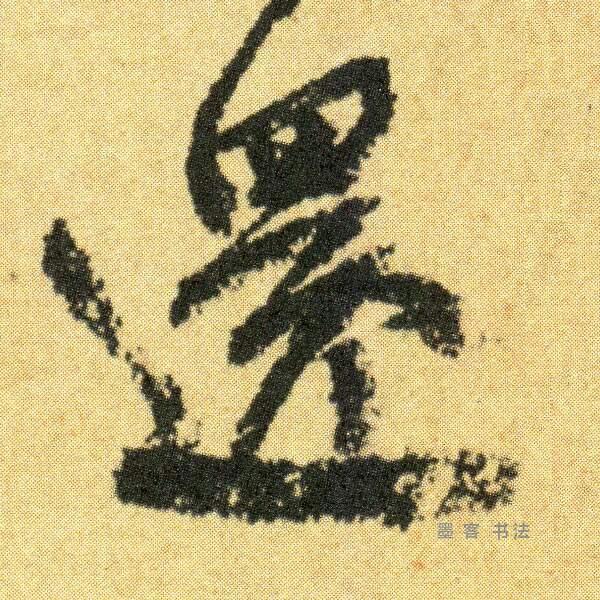 邊
墨客书法